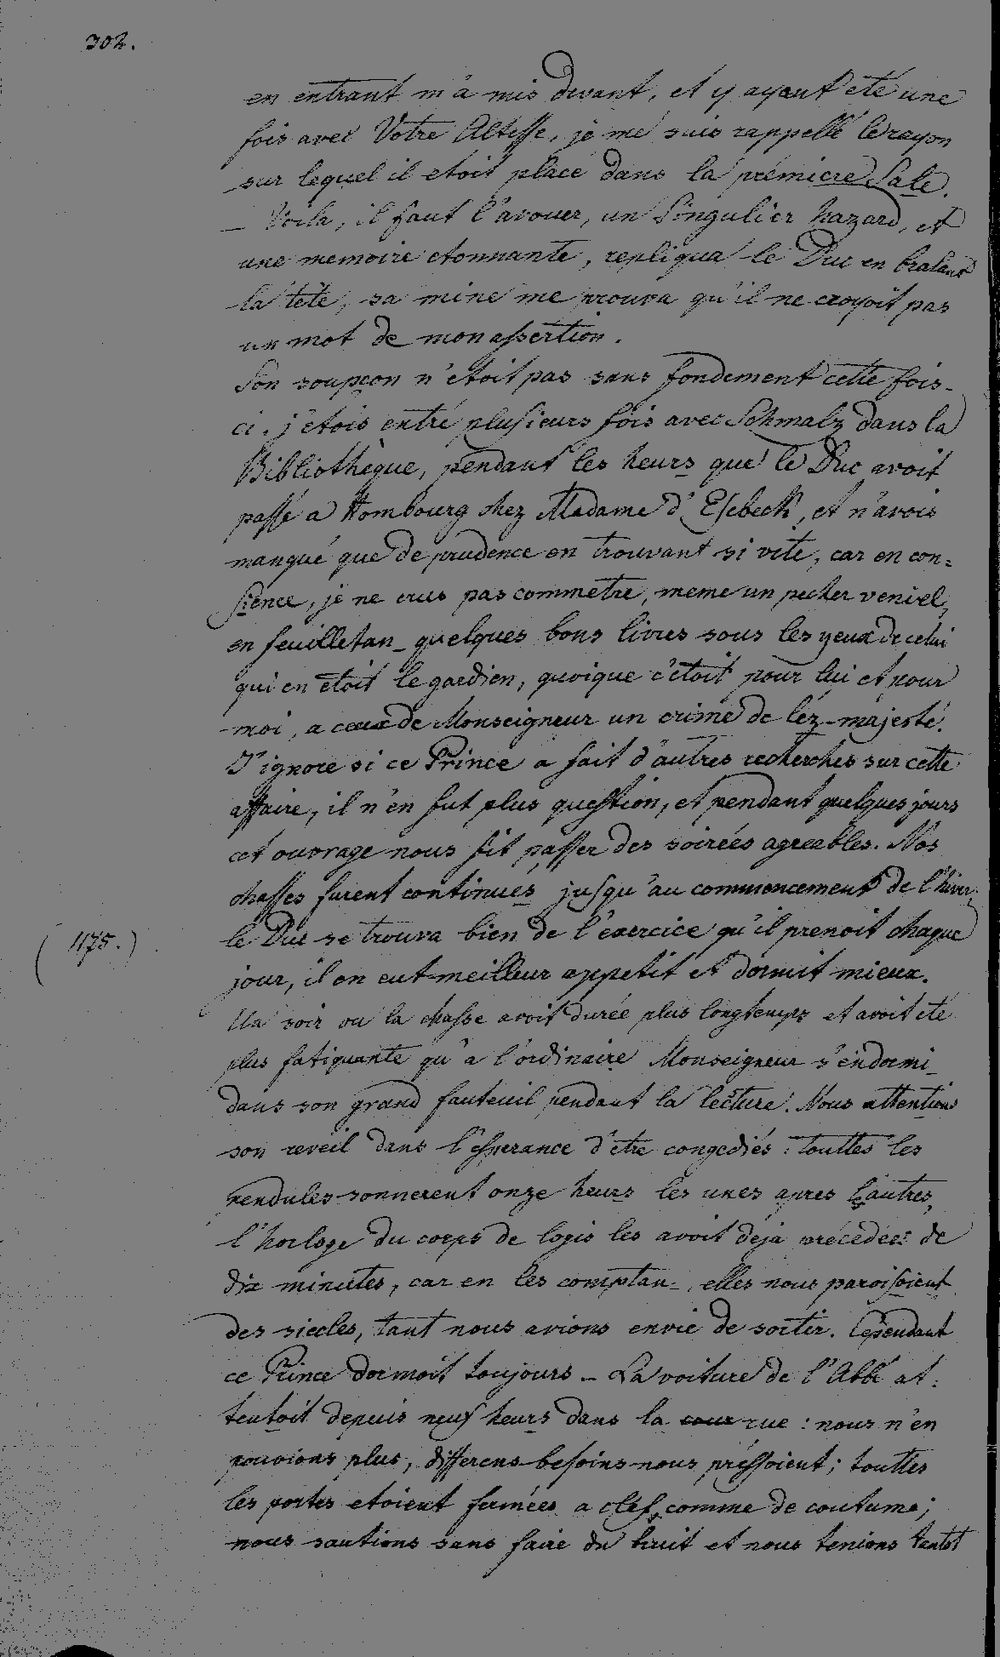 302.
en entrant m'a mis devant, et y ayant eté une
fois avec Votre Altesse, je me suis rappellé le rayon
sur lequel il etoit placé dans la prémiere Sale.
_ Voila, il faut l'avouer, un Singulier hazard, et
une memoire etonnante, repliqua le Duc en bralant
la tete, sa mine me prouva qu'il ne croyoit pas
un mot de mon assertion.
Son soupçon n'etoit pas sans fondement cette fois-
ci. j'etois entré plusieurs fois avec Schmalz dans la
Bibliothèque, pendant les heurs que le Duc avoit
passé a Hombourg chez Madame d'Esebeck, et n'avois
manqué que de prudence en trouvant si vite, car en con=
sience, je ne crus pas commetre, meme un pecher veniel,
en feuilletan_ quelques bons livres sous les yeux de celui
qui en etoit le gardien, quoique c'étoit pour lui et pour
moi, a ceux de Monseigneur un crime de léz-majesté.
J'ignore si ce Prince a fait d'autres recherches sur cette
affaire, il n'en fut plus question, et pendant quelques jours
cet ouvrage nous fit passer des soirées agreables. Nos
chasses furent continués jusqu'au commencement de l'hiver;
( 1775. ) le Duc se trouva bien de l'exercice qu'il prenoit chaque
jour, il en eut meilleur appetit et dormit mieux.
Un soir ou la chasse avoit durée plus longtemps et avoit eté
plus fatiguante qu'a l'ordinaire Monseigneur s'endormi_
dans son grand fauteuil pendant la lecture. Nous attentions
son reveil dans l'esperance d'etre congediés: touttes les
pendules sonnerent onze heurs les unes apres l'autres,
l'horloge du corps de logis les avoit deja précédées de
dix minutes, car en les comptan_, elles nous paroisoient
des siecles, tant nous avions envie de sortir. Cependant
ce Prince dormoit toujours _ La voiture de l'Abbé at=
tentoit depuis neuf heurs dans la cour rue: nous n'en
pouvions plus, differens besoins nous préssoient; touttes
les portes etoient fermées a clef, comme de coutume;
nous sautions sans faire du bruit et nous tenions tantot